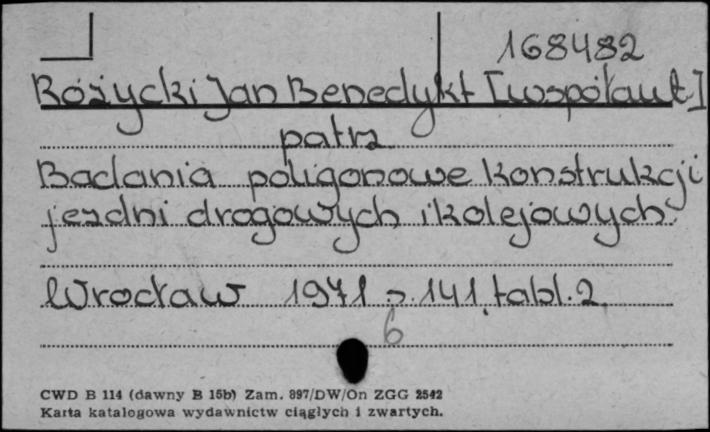 168482
Różycki Jan Benedykt [współaut.]
patrz
Badania poligonowe konstrukcji
jezdni drogowych i kolejowych.
Wrocław 1971 s. 141, tabl. 2.
6
CWD B 114 (dawny B 15b) Zam. 897/DW/On ZGG 2542
Karta katalogowa wydawnictw ciągłych i zwartych.